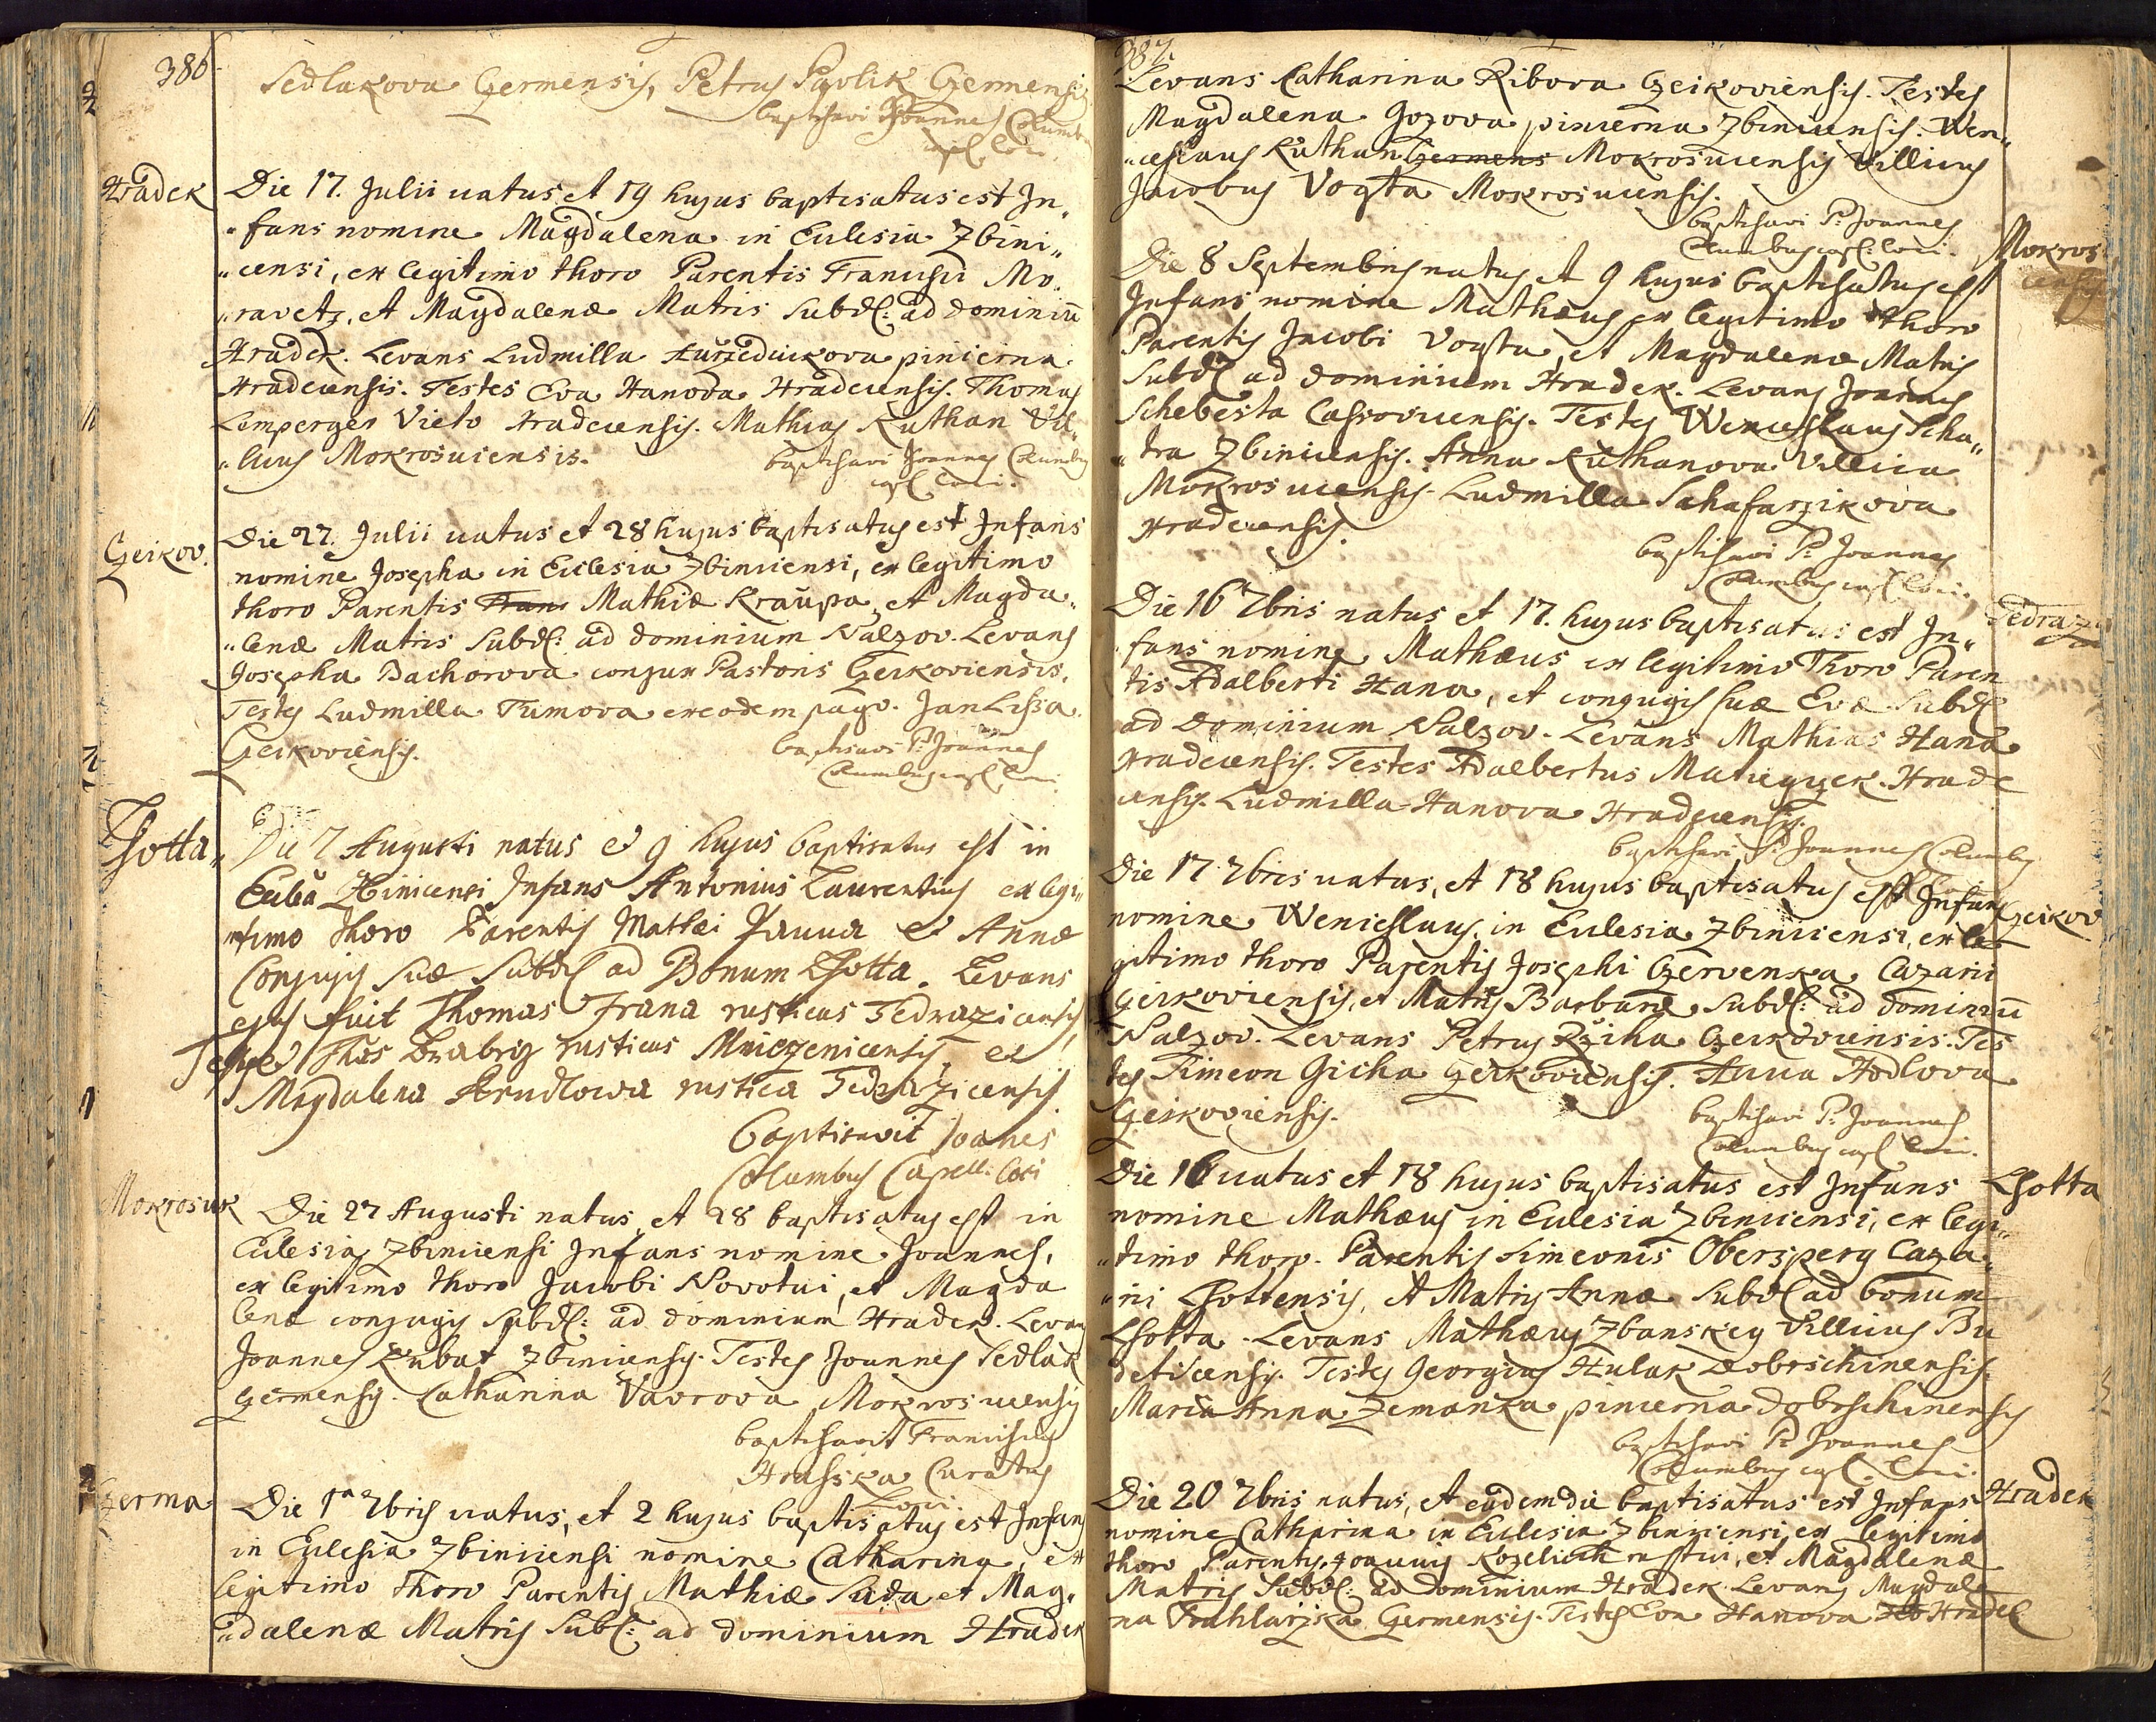 386
Sedlakova Czermensis, Petrus Pavlik Czermensis
baptisavi Joannes Columbus
capl. loci.
Hradek
Die 17. Julii natus et 19 hujus baptisatus est In„
„fans nomine Magdalena in Ecclesia Zbini„
„censi, ex legitimo thoro Parentis Francisci Mo„
„ravetz, et Magdalenæ Matris Subd: ad dominiū
Hradek. Levans Ludmilla Aurzednickova pincerna
Hradecensis. Testes Eva Hanova Hradecensis. Thomas
Lemperger Vieto Hradecensis. Mathias Kuthan Vil„
„licus Mokrosucensis.
baptisavi Joannes Columbus
capl. loci.
Czeikov.
Die 27. Julii natus et 28 hujus baptisatus est Infans
nomine Josepha in Ecclesia Zbinicensi, ex legitimo
thoro Parentis Mathiæ Kraupa, et Magda„
„lenæ Matris Subd: ad dominium Nalzov. Levans
Josepha Bachorova conjux Pastoris Czeikoviensis.
Testes Ludmilla Tumova ex eodem pago. Jan Lissa
Czeikoviensis.
baptisavi P. Joannes
Columbus capl. loci.
Lhotta„
Die 7 Augusti natus et 9 hujus baptisatus est in
Eccla Zbinicensi Infans Antonius Laurentius ex legi„
„timo thoro Parentis Mathæi Panna et Annæ
Conjugis suæ Subd. ad Bonum Lhotta. Levans
ejus fuit Thomas Frana rusticus Tedrazicensis,
Testes Thos Brabrz rusticus Mniczenicensis et
Magdalena Hrudlowa rustica Tedrazicensis
Baptisavit Joanes
Columbus Capell. loci
Mokrosuk
Die 27 Augusti natus, et 28 baptisatus est in
Ecclesia Zbinicensi Infans nomine Joannes,
ex legitimo thoro Jacobi Novotni, et Magda
lenæ conjugis Subd: ad dominium Hradek. Levans
Joannes Kubat Zbinicensis. Testes Joannes Sedlak
Czermensis. Catharina Vavrova Mokrosucensis
baptisavit Franciscus
Hrusska Curatus
Loci.
Czerma
Die 1ª 7bris natus, et 2 hujus baptisatus est Infans
in Ecclesia Zbinicensi nomine Catharina, ex
legitimo thoro Parentis Mathiæ Suda et Mag„
„dalenæ Matris Subd: ad dominium Hradek
387.
Levans Catharina Ribova Czeikoviensis. Testes
Magdalena Gozova pincerna Zbinicensis. Wen„
„ceslaus Kuthan Czermens Mokrosucensis Villicus
Jacobus Vogta Mokrosucensis.
baptisavi P. Joannes
Columbus capl. loci.
Mokrosu
censis
Die 8 Septembris natus et 9 hujus baptisatus est
Infans nomine Mathæus ex legitimo thoro
Parentis Jacobi Vogta, et Magdalenæ Matris
Subd. ad dominium Hradek. Levans Joannes
Schebesta Cassovicensis. Testes Wenceslaus Scha„
„tra Zbinicensis. Anna Kuthanova Villica
Mokrosucensis. Ludmilla Schafarzikova
Hradecensis.
baptisavi P. Joannes
Columbus capl. loci.
Tedraz
Die 16 7bris natus et 17. hujus baptisatus est In„
„fans nomine Mathæus ex legitimo Thoro Paren
tis Adalberti Hana, et conjugis suæ Evæ Subd.
ad dominium Nalzov. Levans Mathias Hana
Hradecensis. Testes Adalbertus Matiegzek Hrade
censis. Ludmilla Hanova Hradecensis.
baptisavi P. Joannes Columbus
Czeikov
Die 17 7bris natus, et 18 hujus baptisatus est Infans
nomine Wenceslaus, in Ecclesia Zbinicensi, ex le
gitimo thoro Parentis Josephi Czervenka Cazarii
Czeikoviensis, et Matris Barbaræ Subd: ad dominiū
Nalzov. Levans Petrus Rziha Czeikoviensis. Tes
tes Simeon Gicha Czeikoviensis. Anna Hodlova
Czeikoviensis.
baptisavi P. Joannes
Columbus capl. loci.
Lhotta
Die 16 natus et 18 hujus baptisatus est Infans
nomine Mathæus in Ecclesia Zbinicensi, ex legi„
„timo thoro Parentis Simeonis Obersperg Caza„
„rii Lhottensis, et Matris Annæ Subd. ad bonum
Lhotta. Levans Mathæus Zbanskey Villicus Bu
deticensis. Testes Georgius Hulak Dobrschinensis.
Maria Anna Zemanka pincerna Dobrschinensis
baptisavi P. Joannes
Columbus capl. loci.
Hradek
Die 20 7bris natus, et eadem die baptisatus est Infans
nomine Catharina in Ecclesia Zbinicensi, ex legitimo
thoro Parentis Joannis Kozelich rustici, et Magdalenæ
Matris Subd: ad dominium Hradek. Levans Magdale
na Truhlarzka Czermensis. Testes Eva Hanova Hradec